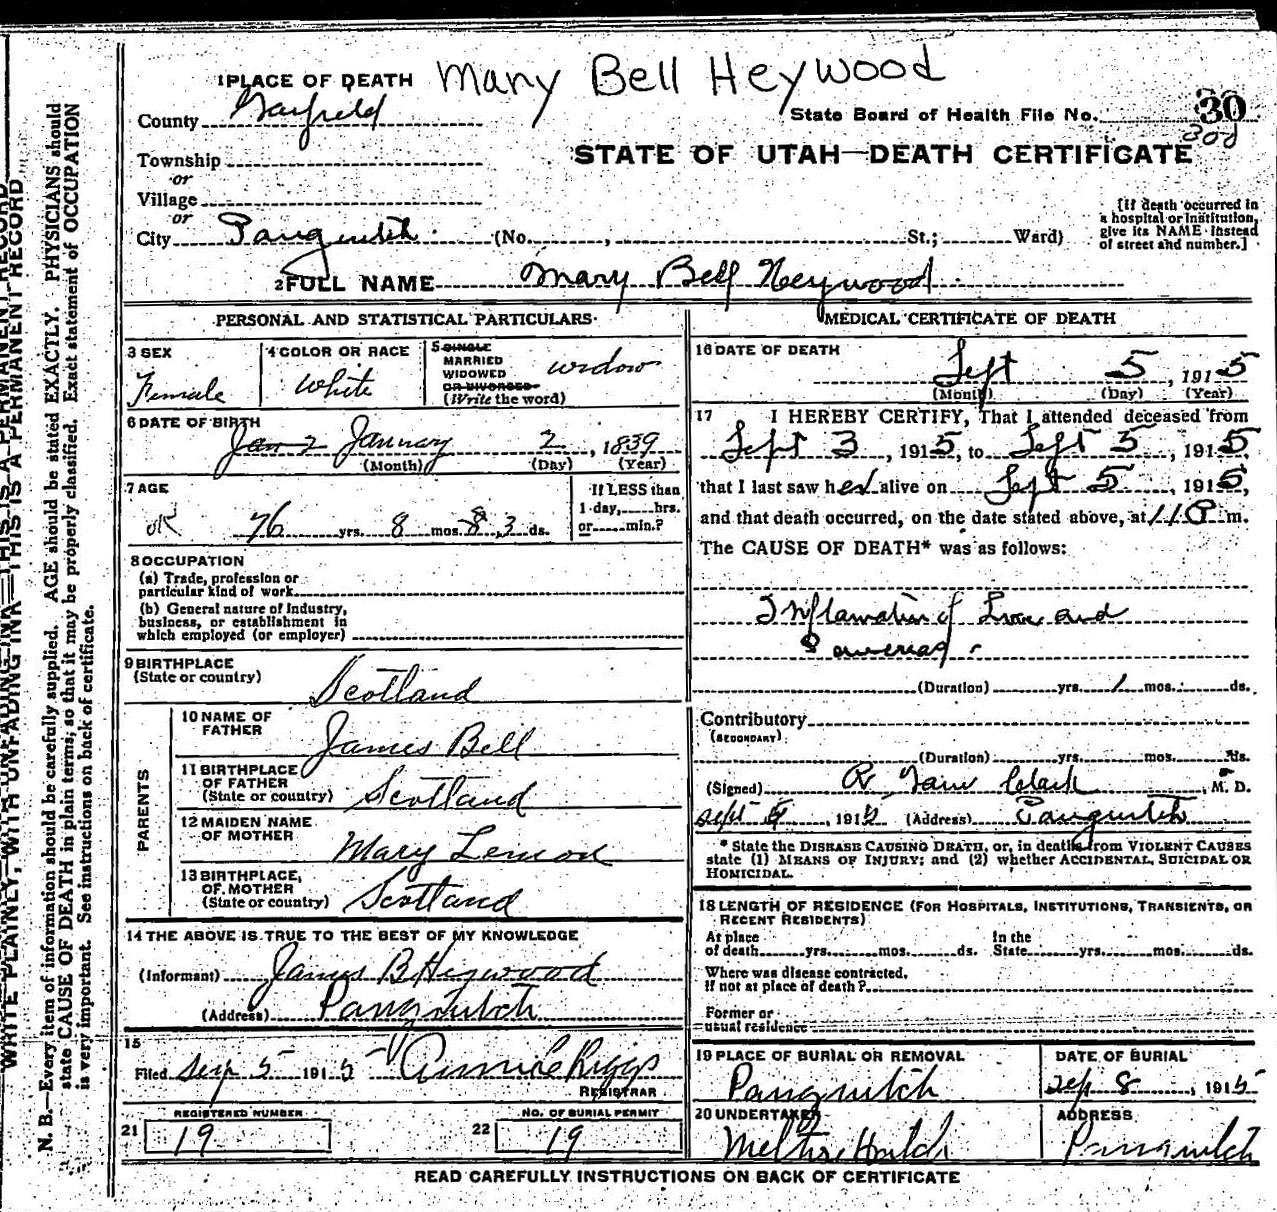 1 PLACE OF DEATH Mary Bell Heywood
County Garfield
State Board of Health File No. 30
308
Township
or
Village
or
City Panguitch (No. , St.; Ward)
STATE OF UTAH—DEATH CERTIFICATE
[If death occurred in
a hospital or institution,
give its NAME instead
of street and number.]
2 FULL NAME Mary Bell Heywood
PERSONAL AND STATISTICAL PARTICULARS
3 SEX
Female
4 COLOR OR RACE
White
5 SINGLE
MARRIED
WIDOWED
OR DIVORCED
(Write the word)
widow
6 DATE OF BIRTH
Jan 2 January 2, 1839
(Month) (Day) (Year)
7 AGE
OK 76 yrs. 8 mos. 8 3 ds.
If LESS than
1 day, hrs.
or min.?
8 OCCUPATION
(a) Trade, profession or
particular kind of work
(b) General nature of Industry,
business, or establishment in
which employed (or employer)
9 BIRTHPLACE
(State or country)
Scotland
PARENTS
10 NAME OF
FATHER
James Bell
11 BIRTHPLACE
OF FATHER
(State or country)
Scotland
12 MAIDEN NAME
OF MOTHER
Mary Lemon
13 BIRTHPLACE,
OF MOTHER
(State or country)
Scotland
14 THE ABOVE IS TRUE TO THE BEST OF MY KNOWLEDGE
(Informant) James B Heywood
(Address) Panguitch
15
Filed Sep 5 1915 Riggs
REGISTRAR
REGISTERED NUMBER
21 19
NO. OF BURIAL PERMIT
22 19
MEDICAL CERTIFICATE OF DEATH
16 DATE OF DEATH
Sept 5, 1915
(Month) (Day) (Year)
17 I HEREBY CERTIFY, That I attended deceased from
Sept 3, 1915, to Sept 5, 1915
that I last saw her alive on Sept 5, 1915,
and that death occurred, on the date stated above, at 11 P m.
The CAUSE OF DEATH* was as follows:
Inflamation of Liver and
Pancreas.
(Duration) yrs. 1 mos. ds.
Contributory
(SECONDARY)
(Duration) yrs. mos. ds.
(Signed) R. Clark, M. D.
Sept, 1915 (Address) Panguitch
* State the DISEASE CAUSING DEATH, or, in deaths from VIOLENT CAUSES
state (1) MEANS OF INJURY; and (2) whether ACCIDENTAL, SUICIDAL OR
HOMICIDAL.
18 LENGTH OF RESIDENCE (FOR HOSPITALS, INSTITUTIONS, TRANSIENTS, OR
RECENT RESIDENTS)
At place
of death yrs. mos. ds.
In the
State yrs. mos. ds.
Where was disease contracted,
If not at place of death?
Former or
usual residence
19 PLACE OF BURIAL OR REMOVAL
Panguitch
DATE OF BURIAL
Sep 8, 1915
20 UNDERTAKER
Hatch
ADDRESS
Panguitch
READ CAREFULLY INSTRUCTIONS ON BACK OF CERTIFICATE
WRITE PLAINLY, WITH UNFADING INK—THIS IS A PERMANENT RECORD
N. B.—Every item of information should be carefully supplied. AGE should be stated EXACTLY. PHYSICIANS should
state CAUSE OF DEATH in plain terms, so that it may be properly classified. Exact statement of OCCUPATION
is very important. See instructions on back of certificate.